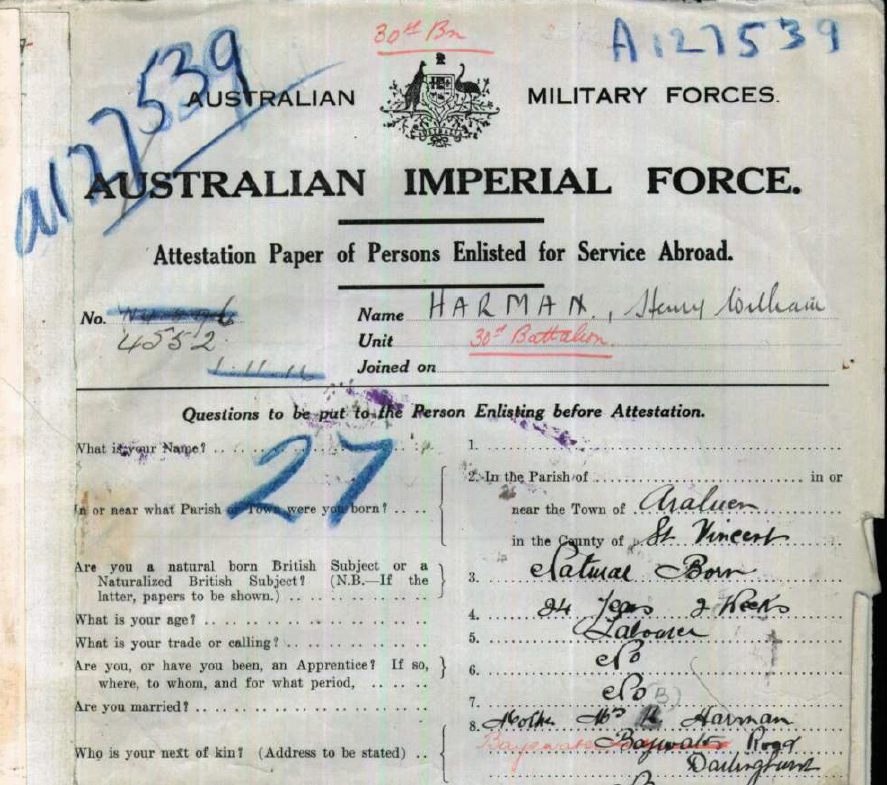 30th Bn
A127539
a127539
AUSTRALIAN MILITARY FORCES.
AUSTRALIAN IMPERIAL FORCE.
Attestation Paper of Persons Enlisted for Service Abroad.
No. 4552
Name HARMAN, Henry William
Unit 30th Battalion
1.11.16
Joined on
Questions to be put to the Person Enlisting before Attestation.
27
What is your Name? 1.
In or near what Parish or Town were you born? 2. In the Parish of in or
near the Town of Araluen
in the County of St Vincent
Are you a natural born British Subject or a
Naturalized British Subject? (N.B.—If the
latter, papers to be shown.) 3. Natural Born
What is your age? 4. 24 Years 2 Weeks
What is your trade or calling? 5. Labourer
Are you, or have you been, an Apprentice? If so,
where, to whom, and for what period, 6. No
Are you married? 7. No
8. Mother Mrs Harman
Who is your next of kin? (Address to be stated) Bayswater Road
Darlinghurst